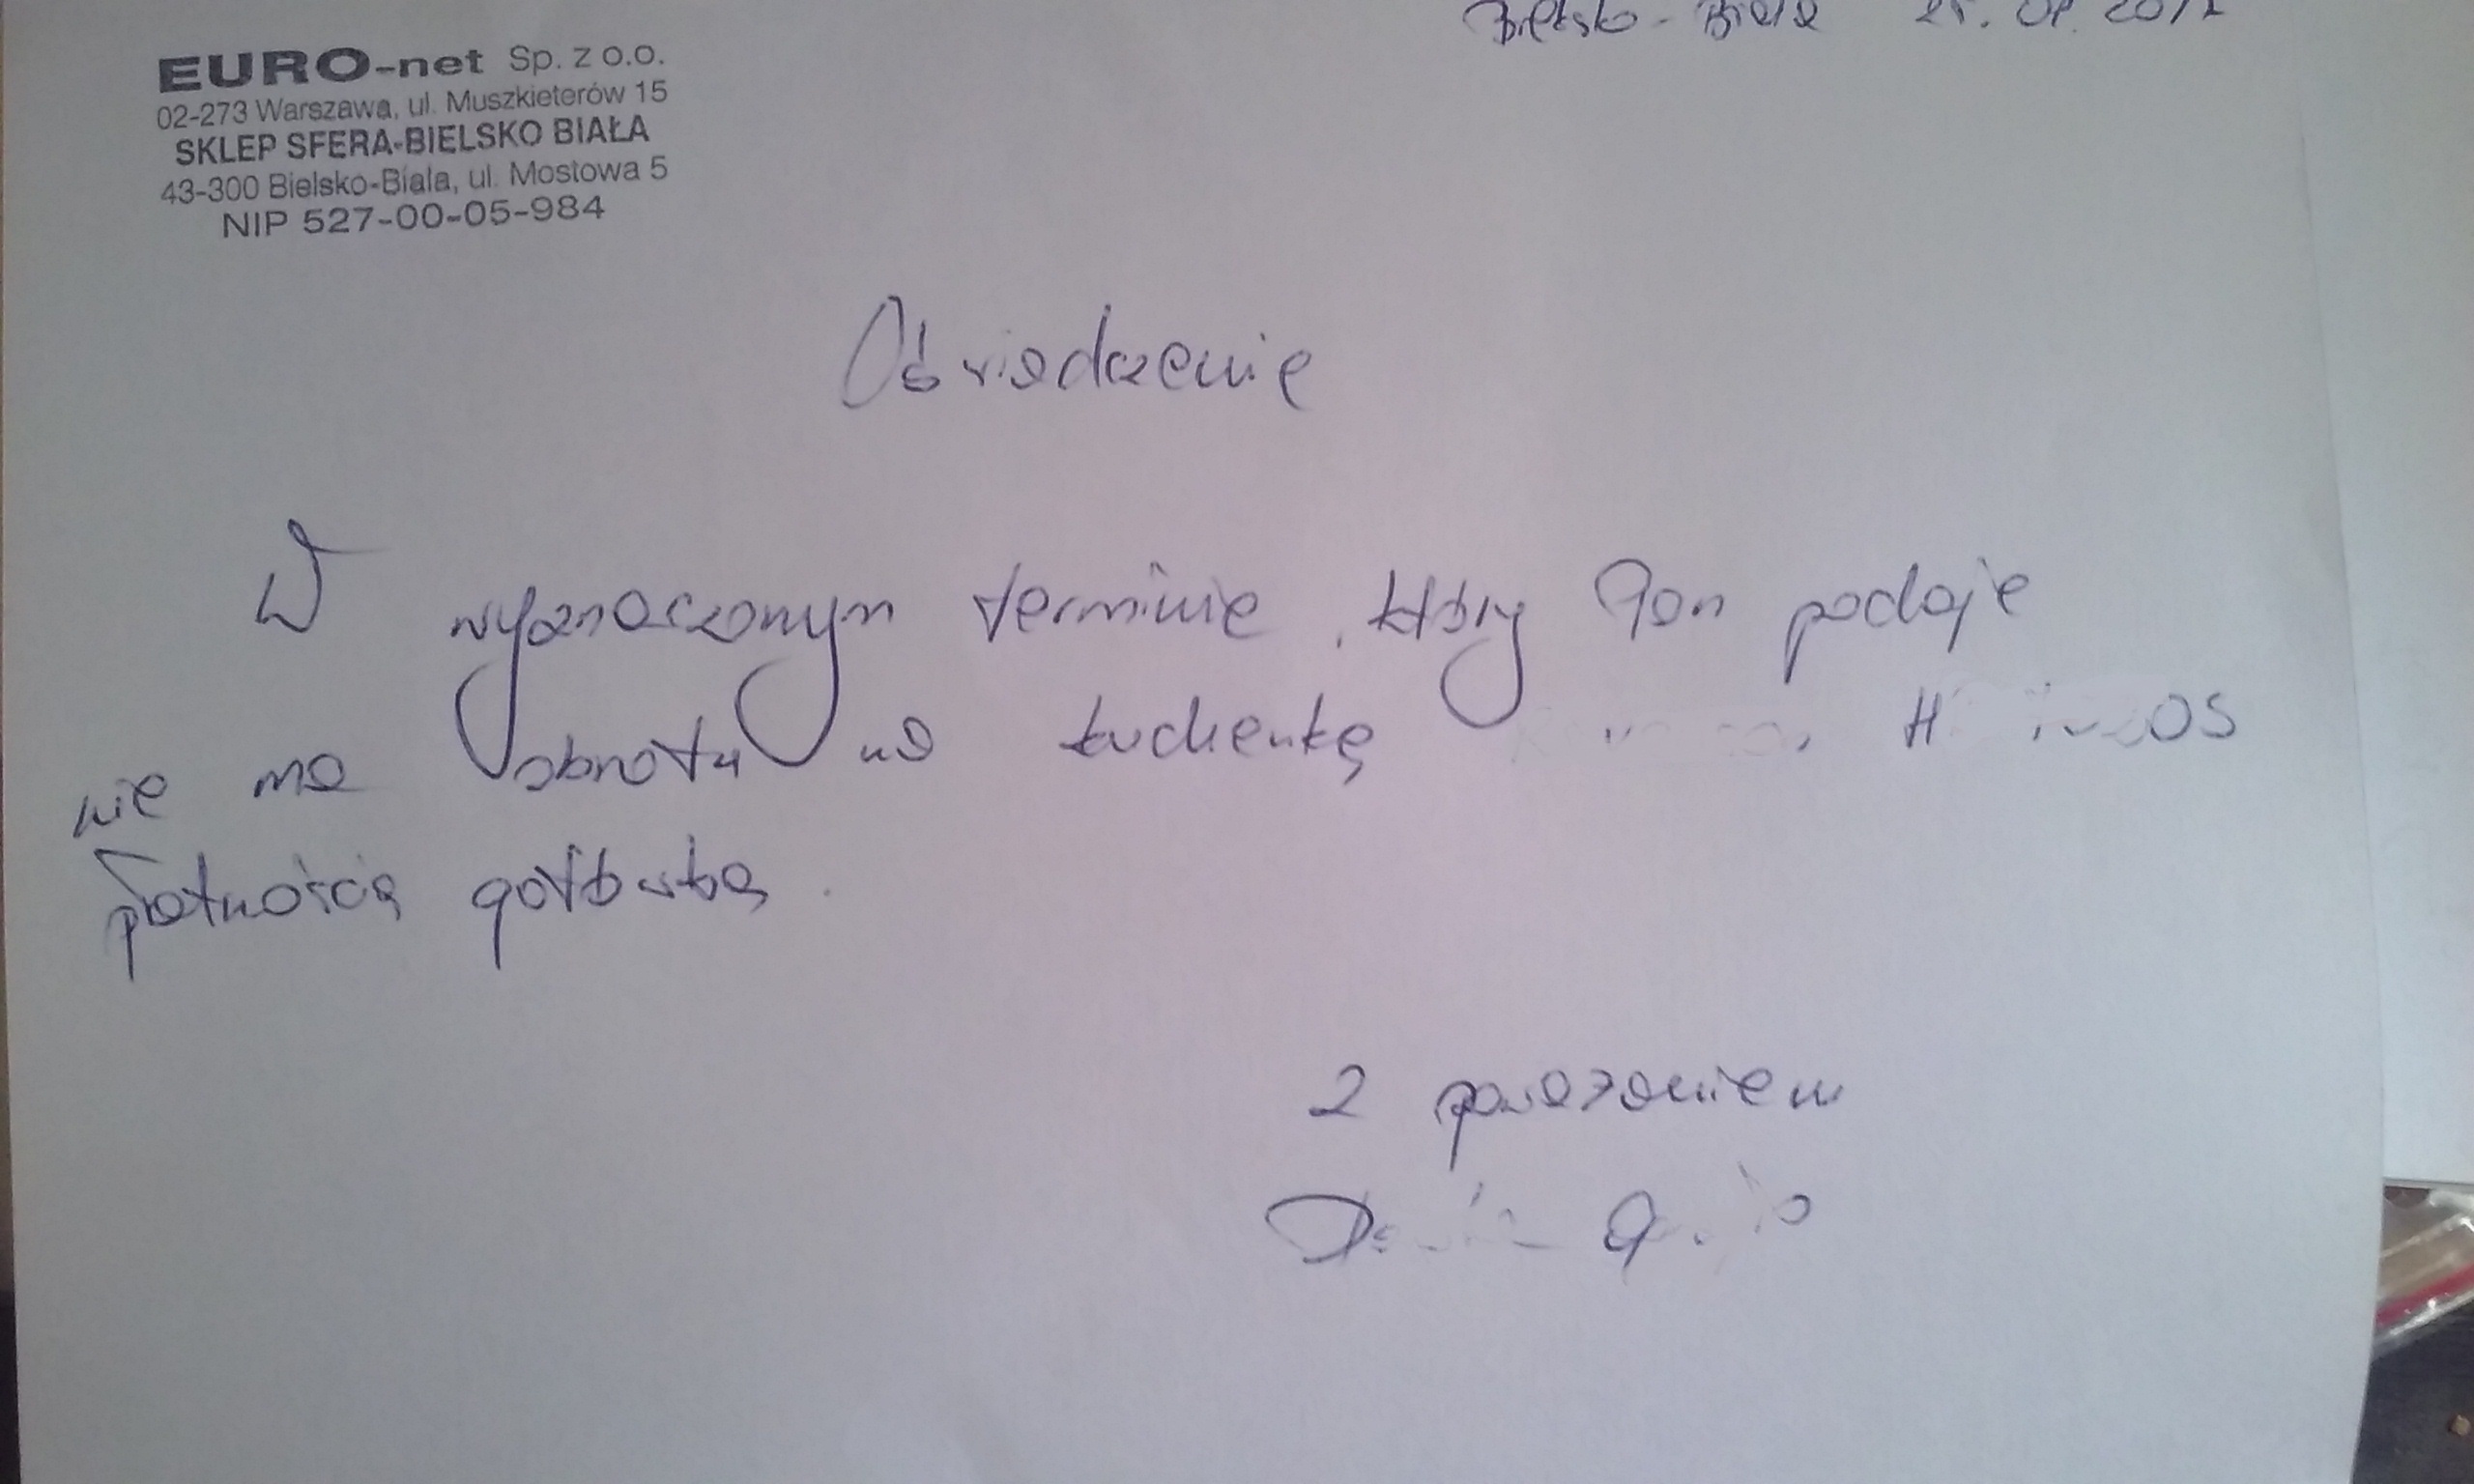 Bielsko-Biała
EURO-net Sp. z o.o.
02-273 Warszawa, ul. Muszkieterów 15
SKLEP SFERA-BIELSKO BIAŁA
43-300 Bielsko-Biala, ul. Mostowa 5
NIP 527-00-05-984
Oświadczenie
W wyznaczonym terminie, który Pan podaje
nie ma obrotu na kuchenkę
płatnością gotówką.
Z poważaniem